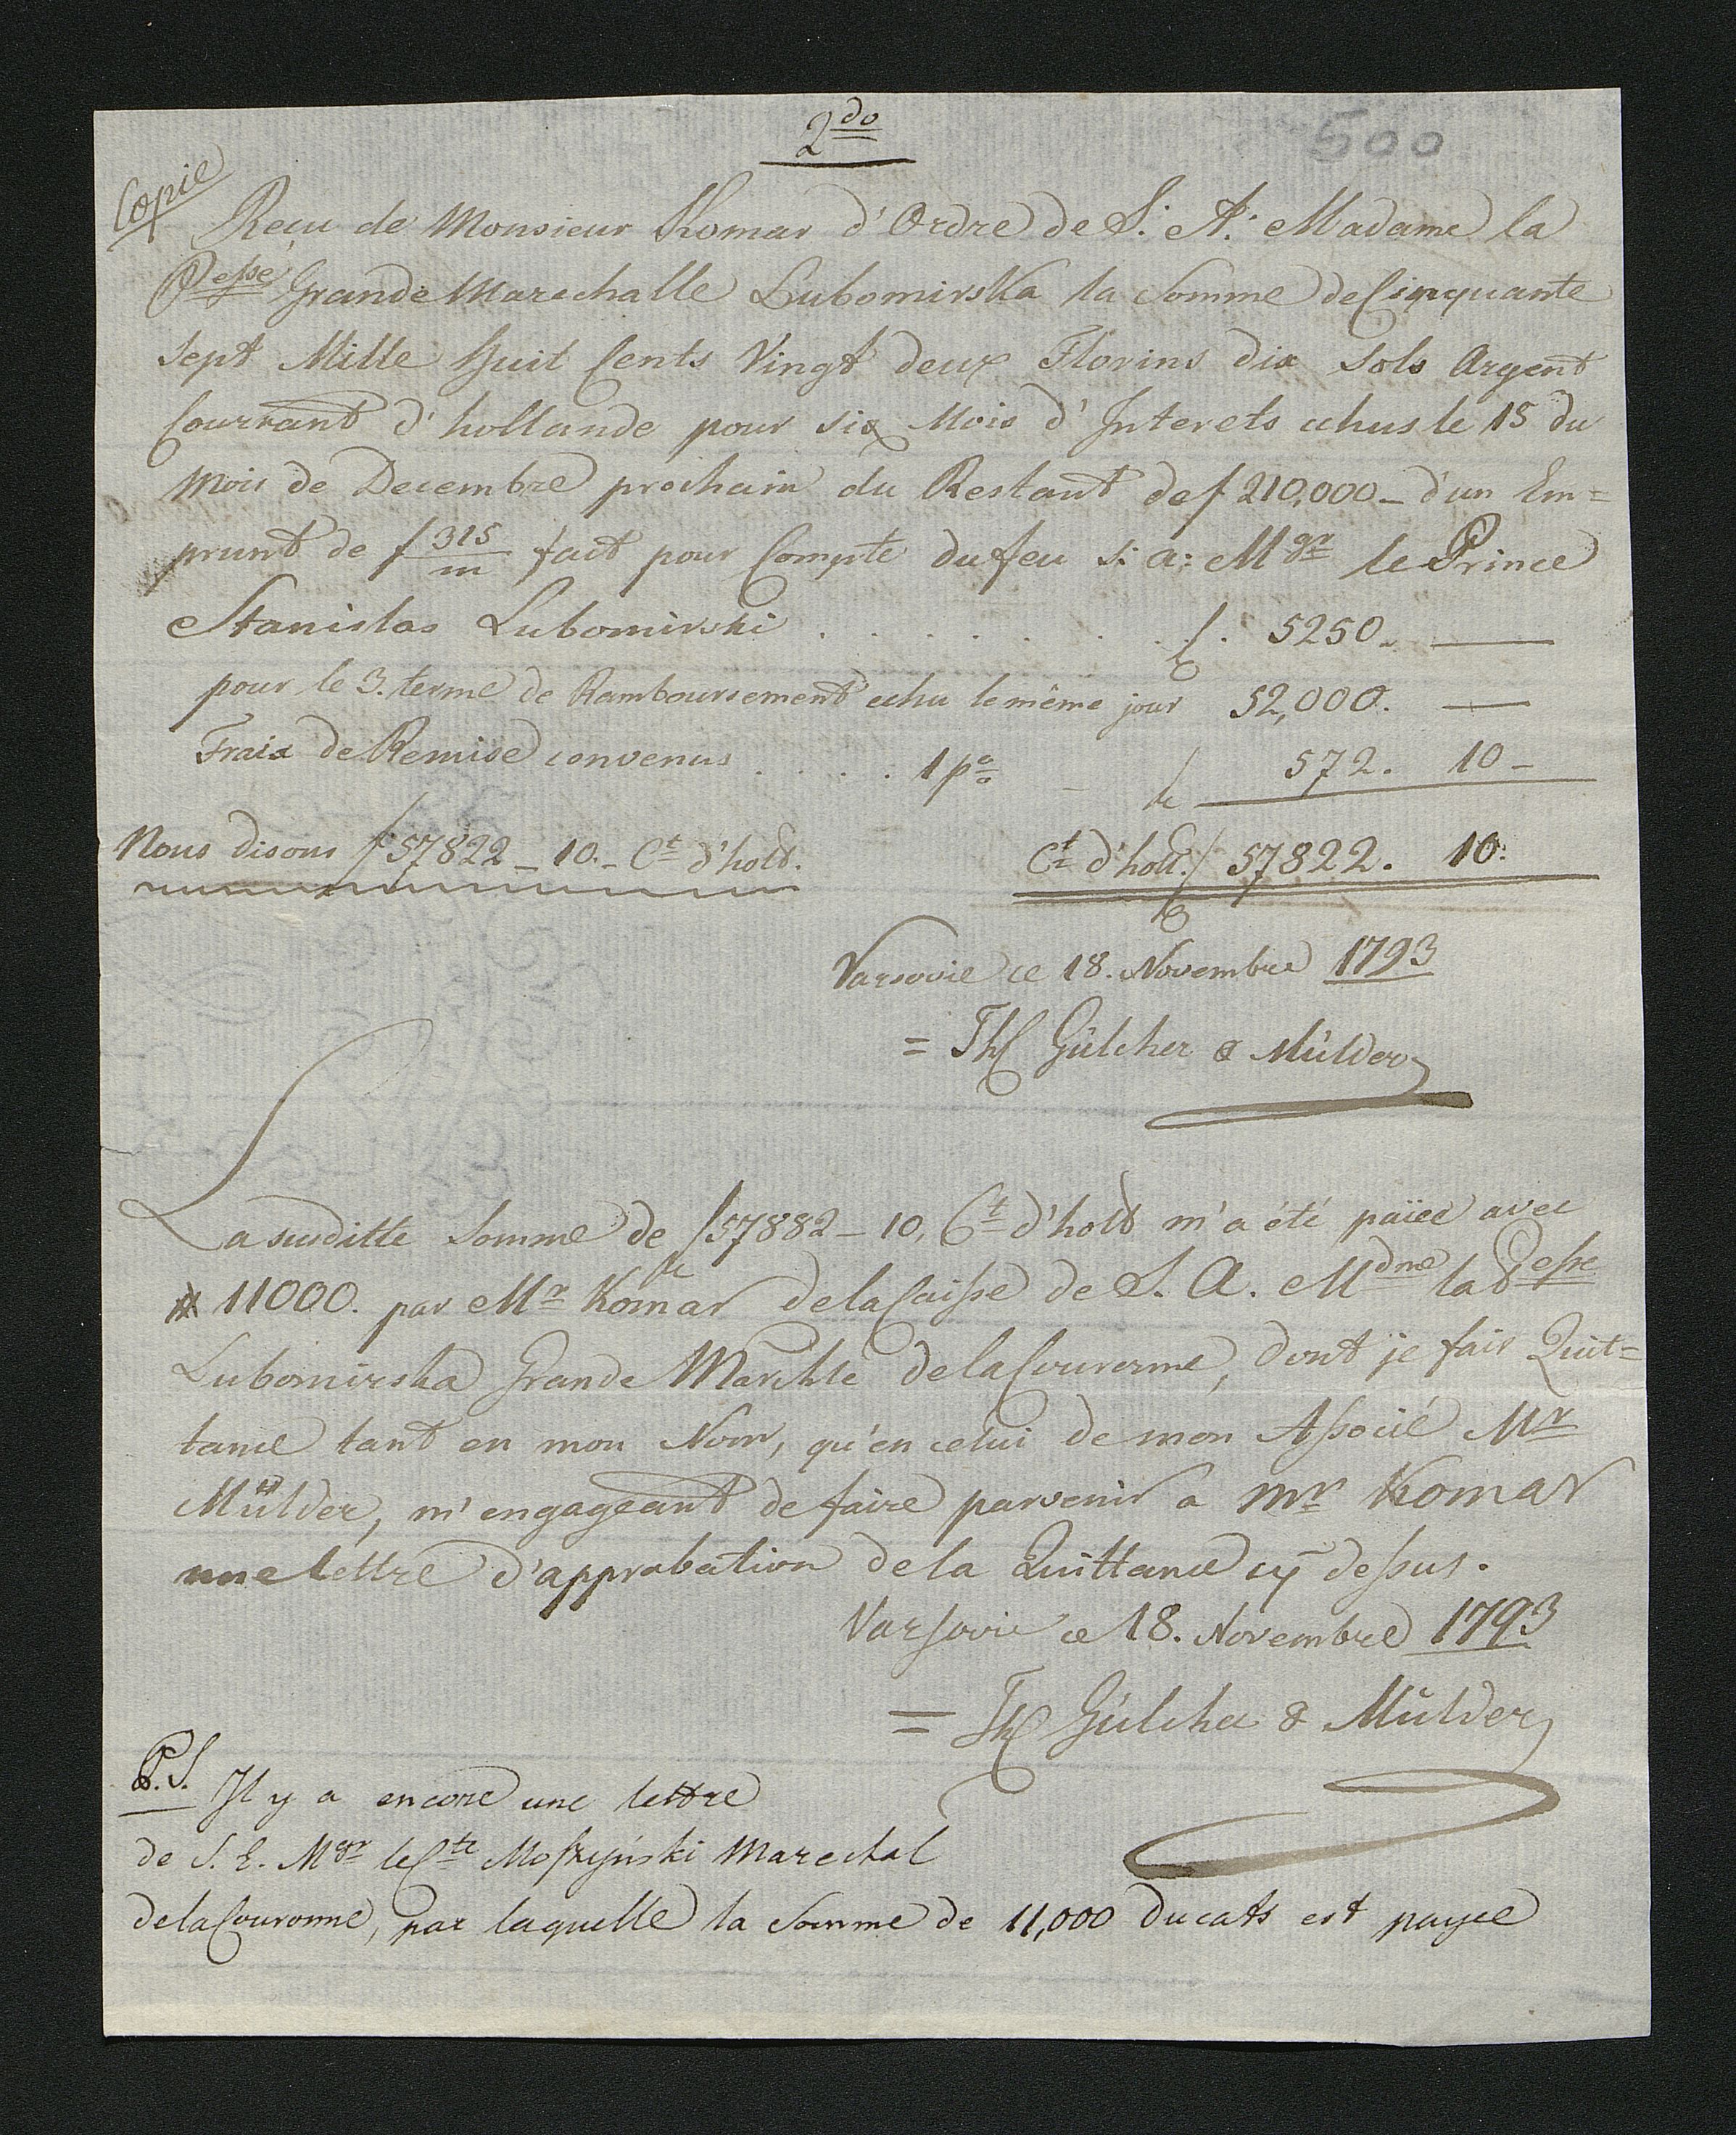 2do
500
Copie
Reçu de Monsieur Komar d'Ordre de S. A. Madame la
Pesse Grande Marechalle Lubomirska la Somme de Cinquante
sept Mille huit Cents Vingt deux Florins dix Sols Argent
Courrant d'hollande pour six Mois d'Interets echus le 15 du
Mois de Decembre prochain du Restant de f 210,000 - d'un Em=
prunt de f 315/m fait pour Compte du feu S: A: Mgr le Prince
Stanislas Lubomirski . . . . . . . f. 5250. —
pour le 3. terme de Ramboursement echu le même jour 52,000. —
Fraix de Remise convenus . . . . 1 p% - 572. 10 -
Nous disons f 57822 - 10. - Ct d'holld. Ct d'holl. f 57822. 10.
Varsovie ce 18. Novembre 1793
= Th Gülcher & Mülder
La susditte Somme de f 57882 - 10, Ct d'holld m'a été païée avec
# 11000. par Mr Komar de la Caisse de S. A. Mdme la Pesse
Lubomirska Grande Marchle de la Couronne, dont je fais Quit=
tance tant en mon Nom, qu'en celui de mon Associé Mr
Mülder, m'engageant de faire parvenir a Mr Komar
une lettre d'approbation de la Quittance cy dessus.
Varsovie ce 18. Novembre 1793
= Th Gülcher & Mülder
P.S. Il y a encore une lettre
de S. E. Mgr le Cte Moszyński Marechal
de la Couronne, par laquelle la Somme de 11,000 Ducats est payée